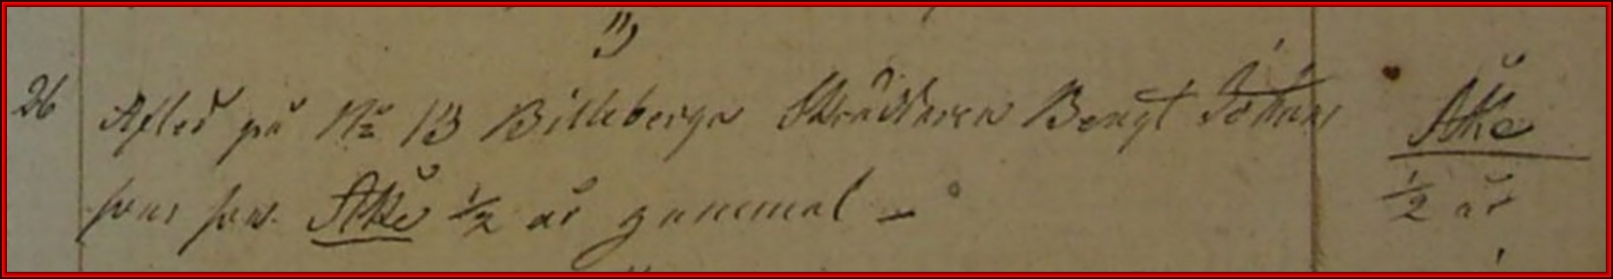 26 Afled på No 13 Billeberga Skräddaren Bengt Johans
sons son Åke 1/2 år gammal —
Åke
1/2 år